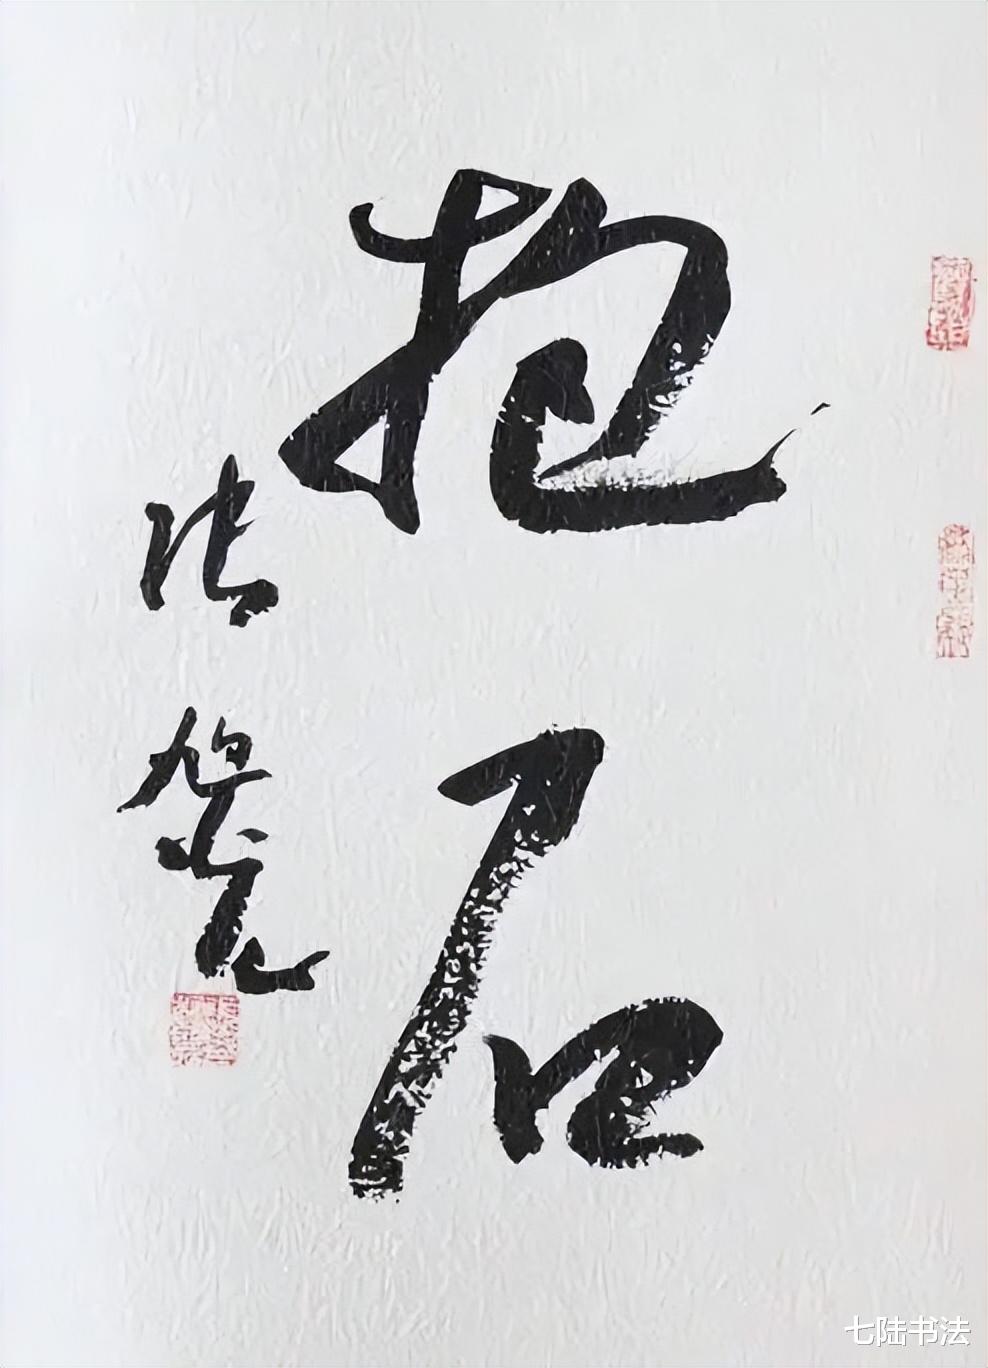 抱石
张旭光
七陆书法